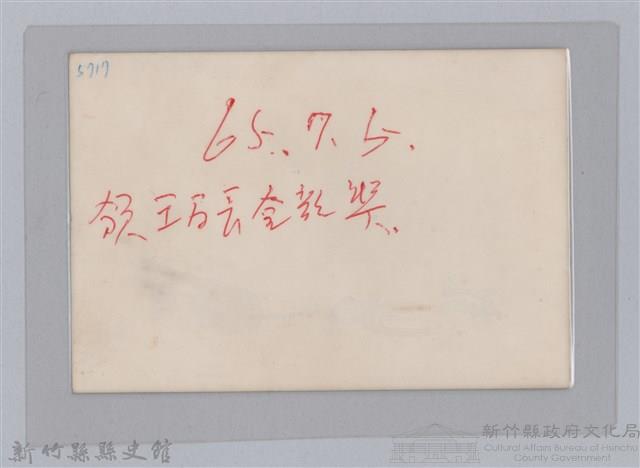 5717
65.7.5.
領王局長金教獎
新竹縣縣史館
新竹縣政府文化局
Cultural Affairs Bureau of Hsinchu
County Government